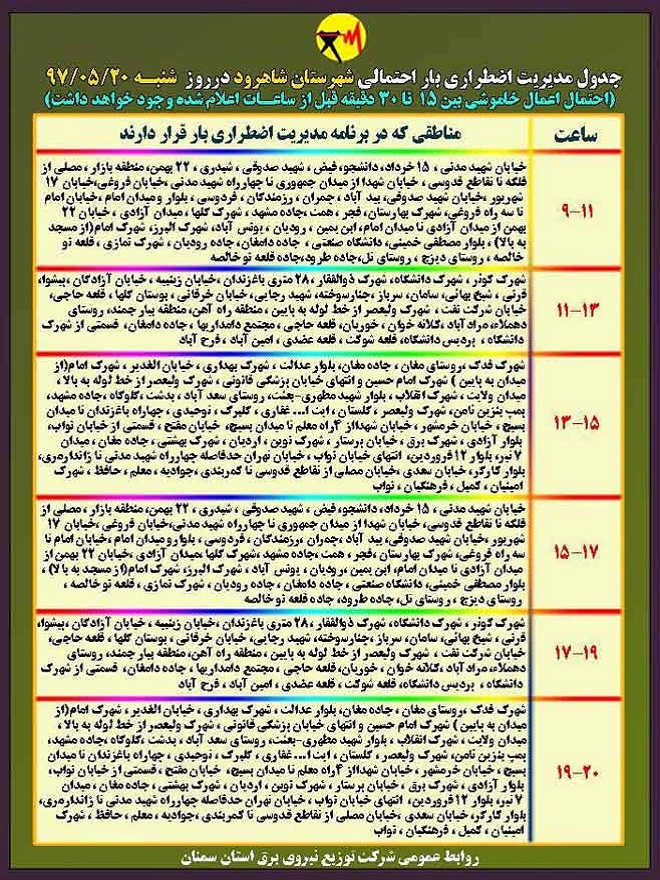 جدول مدیریت اضطراری بار احتمالی شهرستان شاهرود درروز شنبـه ۹۷/۰۵/۲۰
(احتمال اعمال خاموشی بین ۱۵ تا ۳۰ دقیقه قبل از ساعـات اعلام شده وجود خواهد داشت)
ساعت
مناطقی که در برنامه مدیریت اضطراری بار قرار دارند
۹-۱۱
خیابان شهید مدنی ، ۱۵ خرداد، دانشجو، فیض ، شهید صدوقی ، شیدری ، ۲۲ بهمن، منطقه بازار ، مصلی از
فلکه تا تقاطع فدوسی ، خیابان شهدا از میدان جمهوری تا چهارراه شهید مدنی ،خیابان فروغی،خیابان ۱۷
شهریور ،خیابان شهید صدوقی، بید آباد ،چمران ، رزمندگان ، فردوسی ، بلوار و میدان امام ،خیابان امام
تا سه راه فروغی، شهرک بهارستان، فجر ، همت ،جاده مشهد ، شهرک گلها ، میدان آزادی ، خیابان ۲۲
بهمن از میدان آزادی تا میدان امام، ابن یمین ، رودیان ، یونس آباد، شهرک البرز، شهرک امام(از مسجد
به بالا) ، بلوار مصطفی خمینی، دانشگاه صنعتی ، جاده دامغان، جاده رودیان ، شهرک نمازی ، قلعه نو
خالصه ، روستای دیزج ، روستای تل،جاده طرود،جاده قلعه نو خالصه
۱۱-۱۳
شهرک کوثر ، شهرک دانشگاه، شهرک ذوالفقار ، ۲۸ متری باغزندان ،خیابان زینبیه ، خیابان آزادگان ،پیشوا،
قرنی ، شیخ بهائی، سامان، سرباز ،چنارسوخته، شهید رجایی، خیابان خرقانی ، بوستان گلها ، قلعه حاجی،
خیابان شرکت نفت ، شهرک ولیعصر از خط لوله به پایین ، منطقه راه آهن، منطقه بیار جمند، روستای
دهملاء، مراد آباد ،کلاته خوان ، خوریان، قلعه حاجی ، مجتمع دامداریها ، جاده دامغان، قسمتی از شهرک
دانشگاه ، پردیس دانشگاه، قلعه شوکت ، قلعه عضدی ، امین آباد ، فرح آباد
۱۳-۱۵
شهرک فدک ،روستای مغان ، جاده مغان، بلوار عدالت ، شهرک بهداری ، خیابان الغدیر ، شهرک امام(از
میدان به پایین ) شهرک امام حسین و انتهای خیابان پزشکی قانونی ، شهرک ولیعصر از خط لوله به بالا ،
میدان ولایت ، شهرک انقلاب ، بلوار شهید مطهری-بعثت، روستای سعد آباد ، بدشت ،کلوگاه ،جاده مشهد،
پمپ بنزین تامن، شهرک ولیعصر ، گلستان ، ایت ا... غفاری ، گلبرگ ، توحیدی ، چهاراه باغزندان تا میدان
بسیج ، خیابان خرمشهر ، خیابان شهدااز ۴ راه معلم تا میدان بسیج، خیابان مفتح ، قسمتی از خیابان نواب،
بلوار آزادی ، شهرک برق ، خیابان پرستار ، شهرک نوین ، اردیان ، شهرک بهشتی ، جاده مغان ، میدان
۷ تیر، بلوار ۱۲ فروردین، انتهای خیابان نواب ، خیابان تهران حدفاصله چهارراه شهید مدنی تا ژاندارمری،
بلوار کارگر، خیابان سعدی ،خیابان مصلی از تقاطع قدوسی تا کمربندی، جوادیه ، معلم ، حافظ ، شهرک
امینیان ، کمیل ، فرهنگیان ، نواب
۱۵-۱۷
خیابان شهید مدنی ، ۱۵ خرداد، دانشجو، فیض ، شهید صدوقی ، شیدری ، ۲۲ بهمن، منطقه بازار ، مصلی از
فلکه تا تقاطع قدوسی ، خیابان شهدا از میدان جمهوری تا چهارراه شهید مدنی ،خیابان فروغی،خیابان ۱۷
شهریور ،خیابان شهید صدوقی، بید آباد ،چمران ، رزمندگان ، فردوسی ، بلوار و میدان امام ، خیابان امام تا
سه راه فروغی، شهرک بهارستان ،فجر ، همت ،جاده مشهد ،شهرک گلها ،میدان آزادی ،خیابان ۲۲ بهمن از
میدان آزادی تا میدان امام، ابن یمین ، رودیان ، یونس آباد ، شهرک البرز، شهرک امام(از مسجد به بالا) ،
بلوار مصطفی خمینی، دانشگاه صنعتی ، جاده دامغان ، جاده رودیان ، شهرک نمازی ، قلعه نو خالصه ،
روستای دیزج ، روستای تل، جاده طرود، جاده قلعه نو خالصه
۱۷-۱۹
شهرک کوثر ، شهرک دانشگاه، شهرک ذوالفقار ، ۲۸ متری باغزندان ،خیابان زینبیه ، خیابان آزادگان ،پیشوا،
قرنی ، شیخ بهائی، سامان، سرباز ،چنارسوخته، شهید رجایی، خیابان خرقانی ، بوستان گلها ، قلعه حاجی،
خیابان شرکت نفت ، شهرک ولیعصر از خط لوله به پایین ، منطقه راه آهن، منطقه بیار جمند، روستای
دهملاء، مراد آباد ،کلاته خوان ، خوریان، قلعه حاجی ، مجتمع دامداریها ، جاده دامغان، قسمتی از شهرک
دانشگاه ، پردیس دانشگاه، قلعه شوکت ، قلعه عضدی ، امین آباد ، فرح آباد
۱۹-۲۰
شهرک فدک ، روستای مغان ، جاده مغان، بلوار عدالت ، شهرک بهداری ، خیابان الغدیر ، شهرک امام(از
میدان به پایین ) شهرک امام حسین و انتهای خیابان پزشکی قانونی ، شهرک ولیعصر از خط لوله به بالا ،
میدان ولایت ، شهرک انقلاب ، بلوار شهید مطهری-بعثت، روستای سعد آباد ، بدشت ،کلوگاه ،جاده مشهد،
پمپ بنزین تامن، شهرک ولیعصر ، گلستان ، ایت ا... غفاری ، گلبرگ ، توحیدی ، چهاراه باغزندان تا میدان
بسیج ، خیابان خرمشهر ، خیابان شهدااز ۴ راه معلم تا میدان بسیج، خیابان مفتح ، قسمتی از خیابان نواب،
بلوار آزادی ، شهرک برق ، خیابان پرستار ، شهرک نوین ، اردیان ، شهرک بهشتی ، جاده مغان ، میدان
۷ تیر، بلوار ۱۲ فروردین، انتهای خیابان نواب ، خیابان تهران حدفاصله چهارراه شهید مدنی تا ژاندارمری،
بلوار کارگر، خیابان سعدی ،خیابان مصلی از تقاطع قدوسی تا کمربندی، جوادیه ، معلم ، حافظ ، شهرک
امینیان ، کمیل ، فرهنگیان ، نواب
روابط عمومی شرکت توزیع نیروی برق استان سمنان